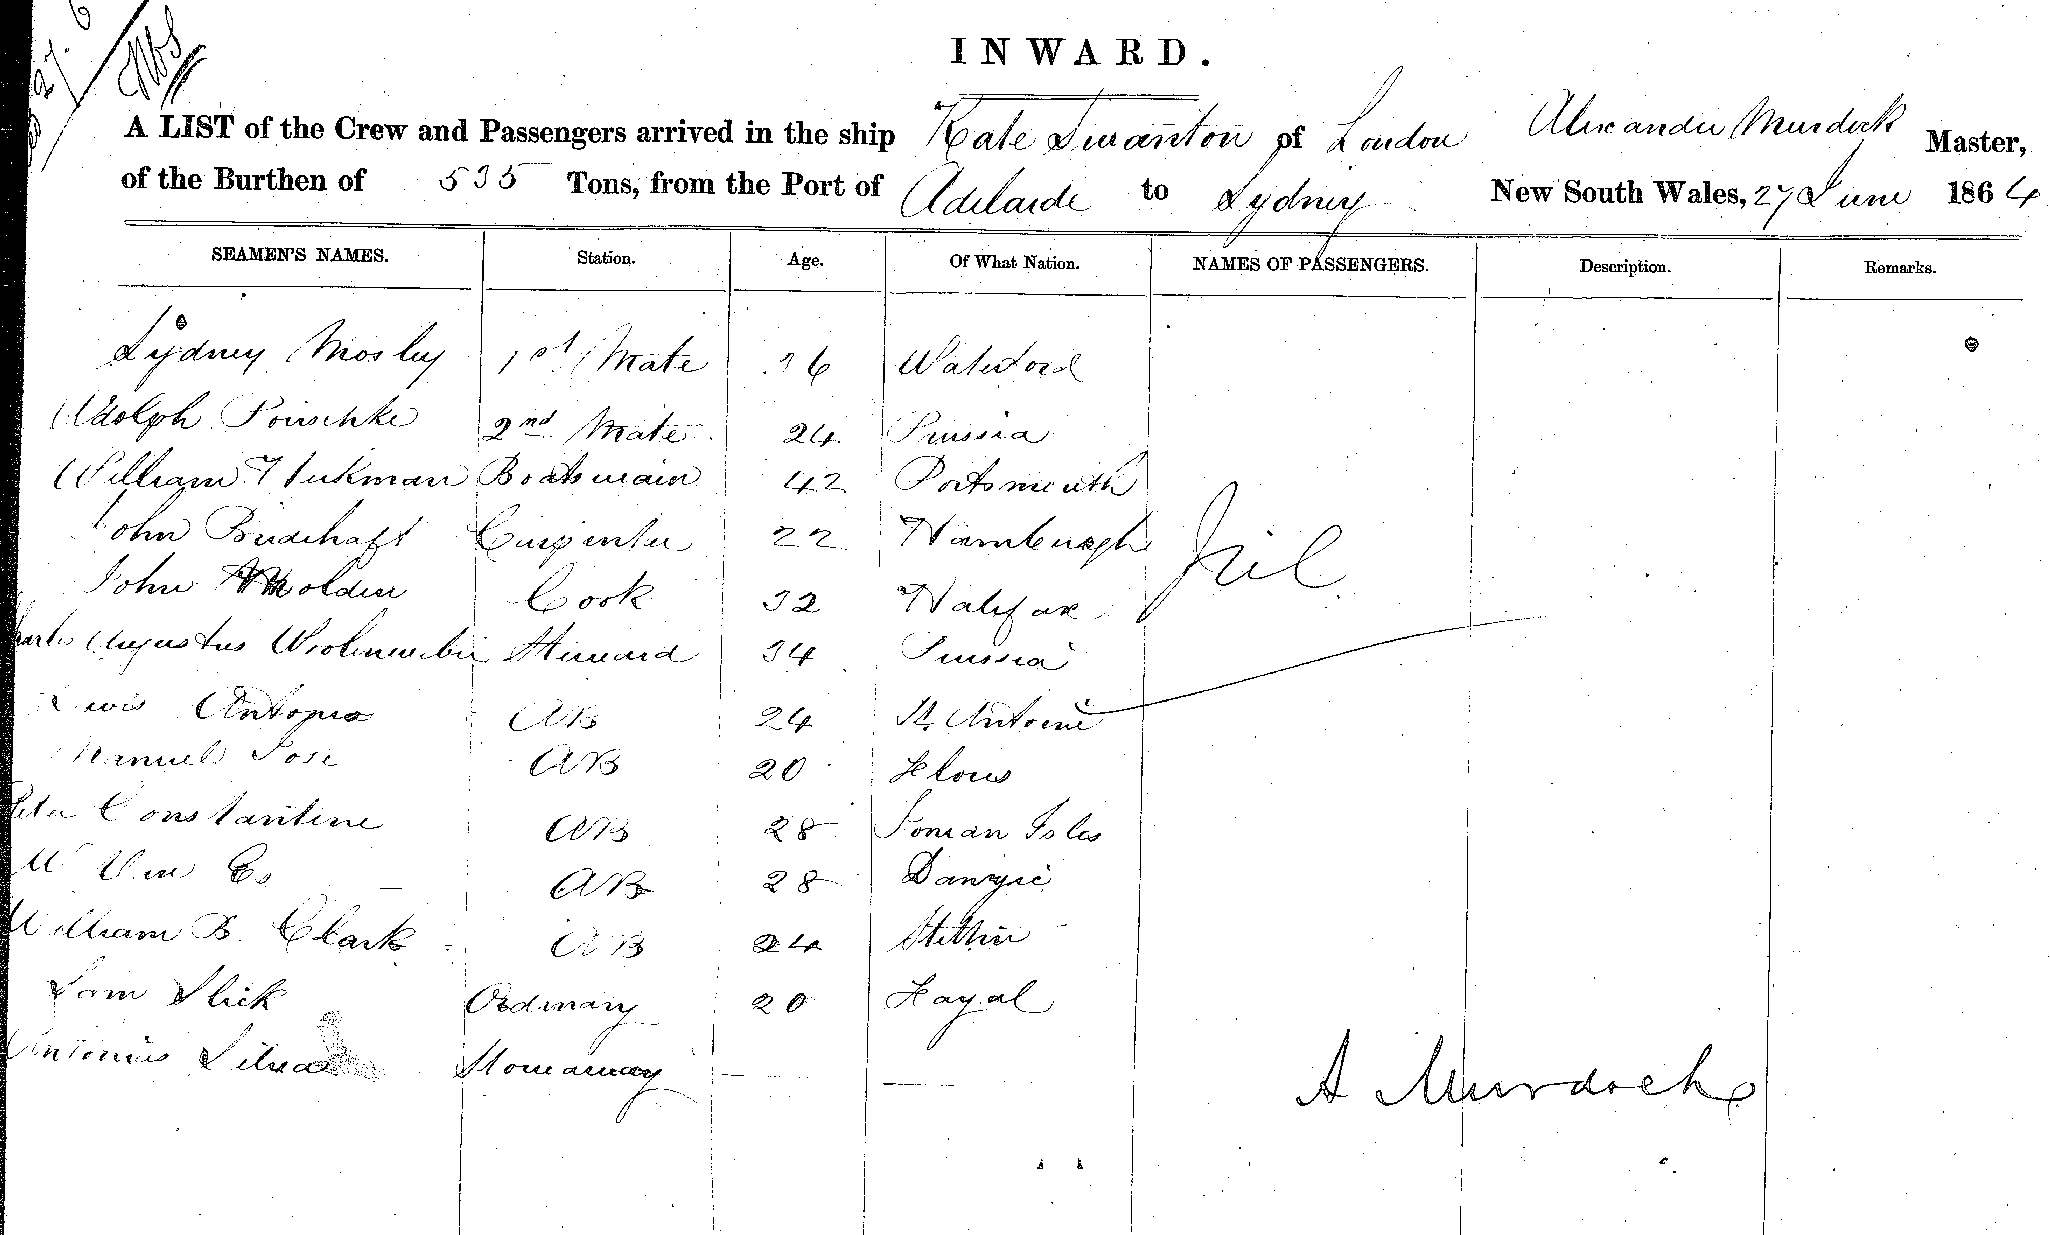 INWARD.
A LIST of the Crew and Passengers arrived in the ship Kate Swanton of London Alexander Murdock Master,
of the Burthen of 535 Tons, from the Port of Adelaide to Sydney New South Wales, 27 June 1864
SEAMEN'S NAMES. Station. Age. Of What Nation. NAMES OF PASSENGERS. Description. Remarks.
Sydney Mosley 1st Mate 36 Waterford
Adolph 2nd Mate 24 Prussia
William Boatswain 42 Portsmouth
John Carpenter 22 Hamburgh
Nil
John Cook 32 Halifax
Charles Augustus Steward 34 Prussia
Lewis Antonio AB 24 St Antoine
Manuel Jose AB 20 Flores
Peter Constantine AB 28 Ionian Isles
AB 28 Danzic
William B. Clark AB 24 Stettin
Sam Slick Ordinary 20 Fayal
Antonius Silva Stowaway — —
A Murdoch